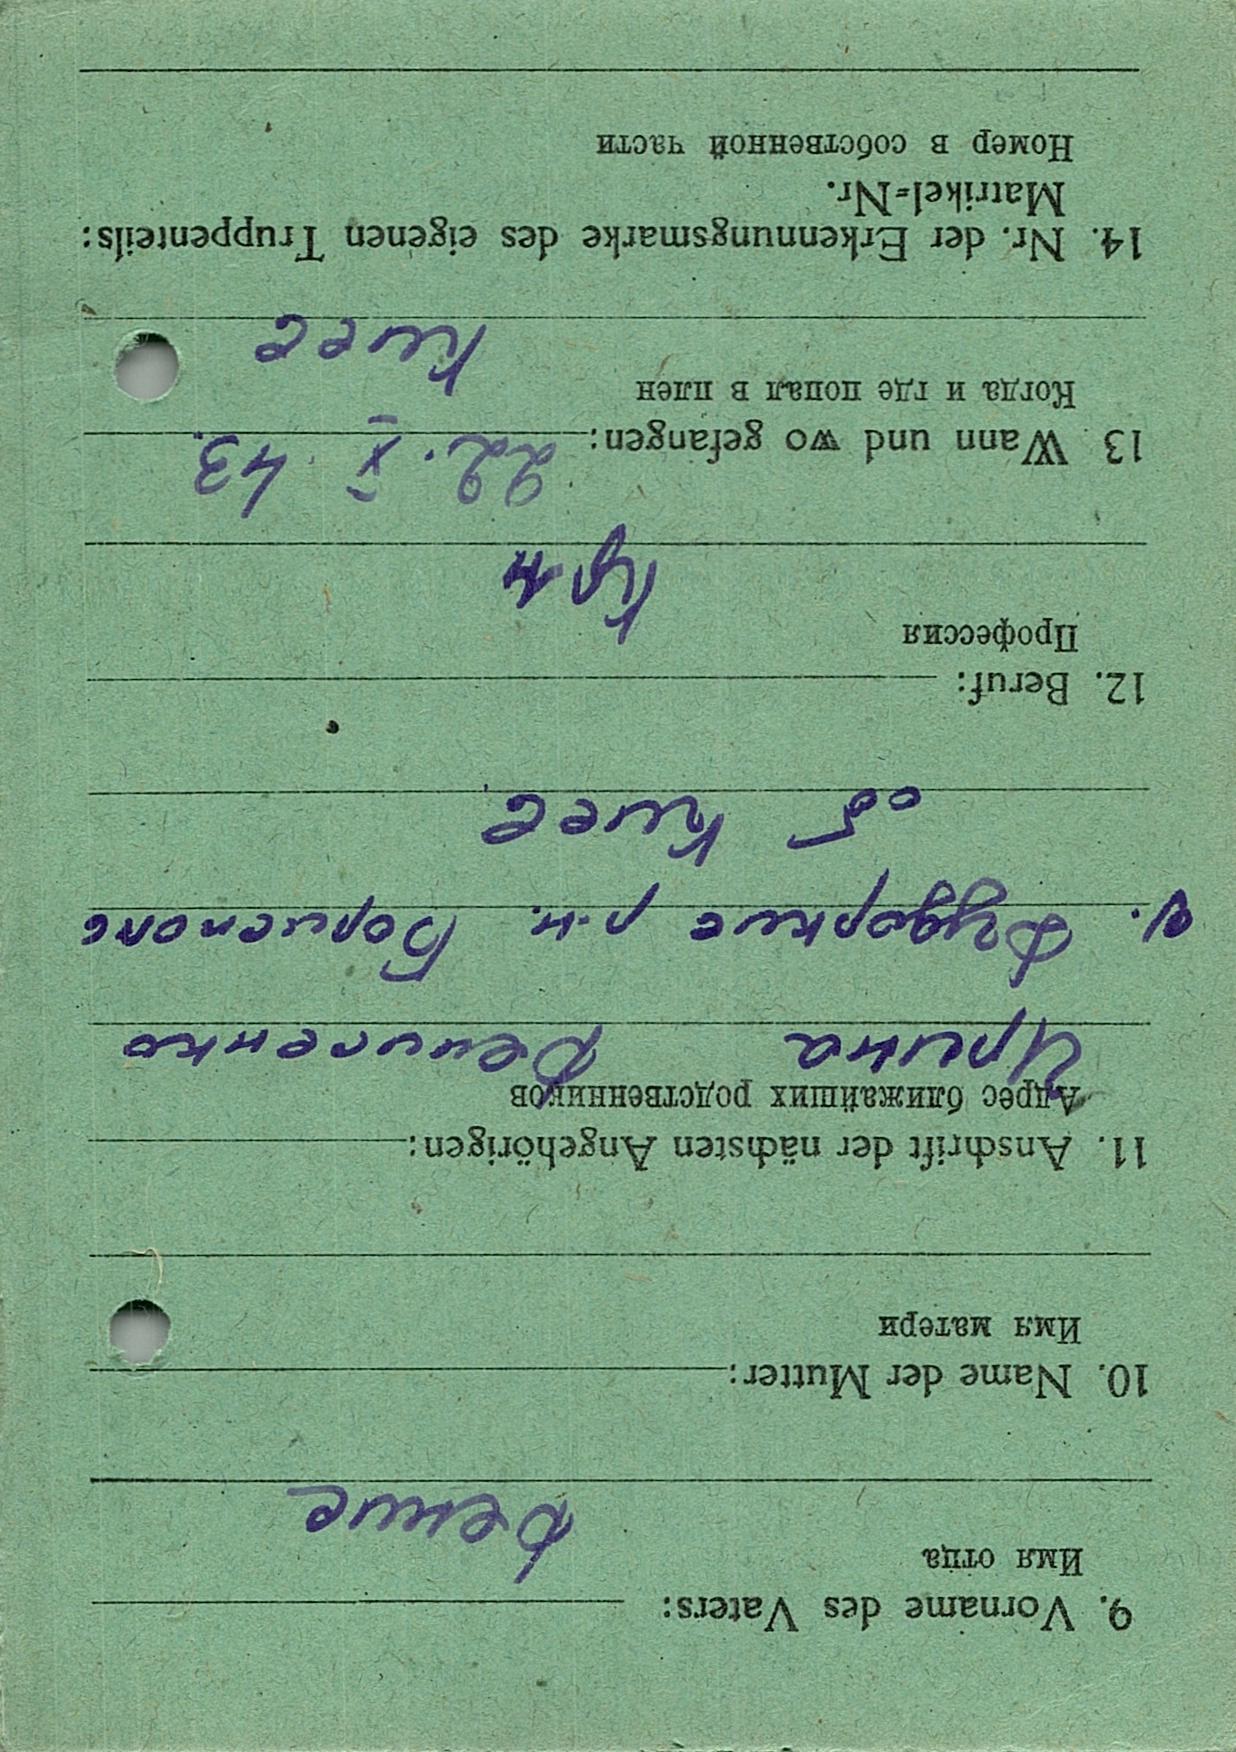 9. Vorname des Vaters:
Имя отца
10. Name der Mutter:
Имя матери
11. Anschrift der nächsten Angehörigen:
Адрес ближайших родственников
Ирина Денисенко
р-н. Бориспол
об Киев
12. Beruf:
Профессия
13 Wann und wo gefangen: 22. X. 43.
Когда и где попал в плен
Киев
14. Nr. der Erkennungsmarke des eigenen Truppenteils:
Matrikel-Nr.
Номер в собственной части